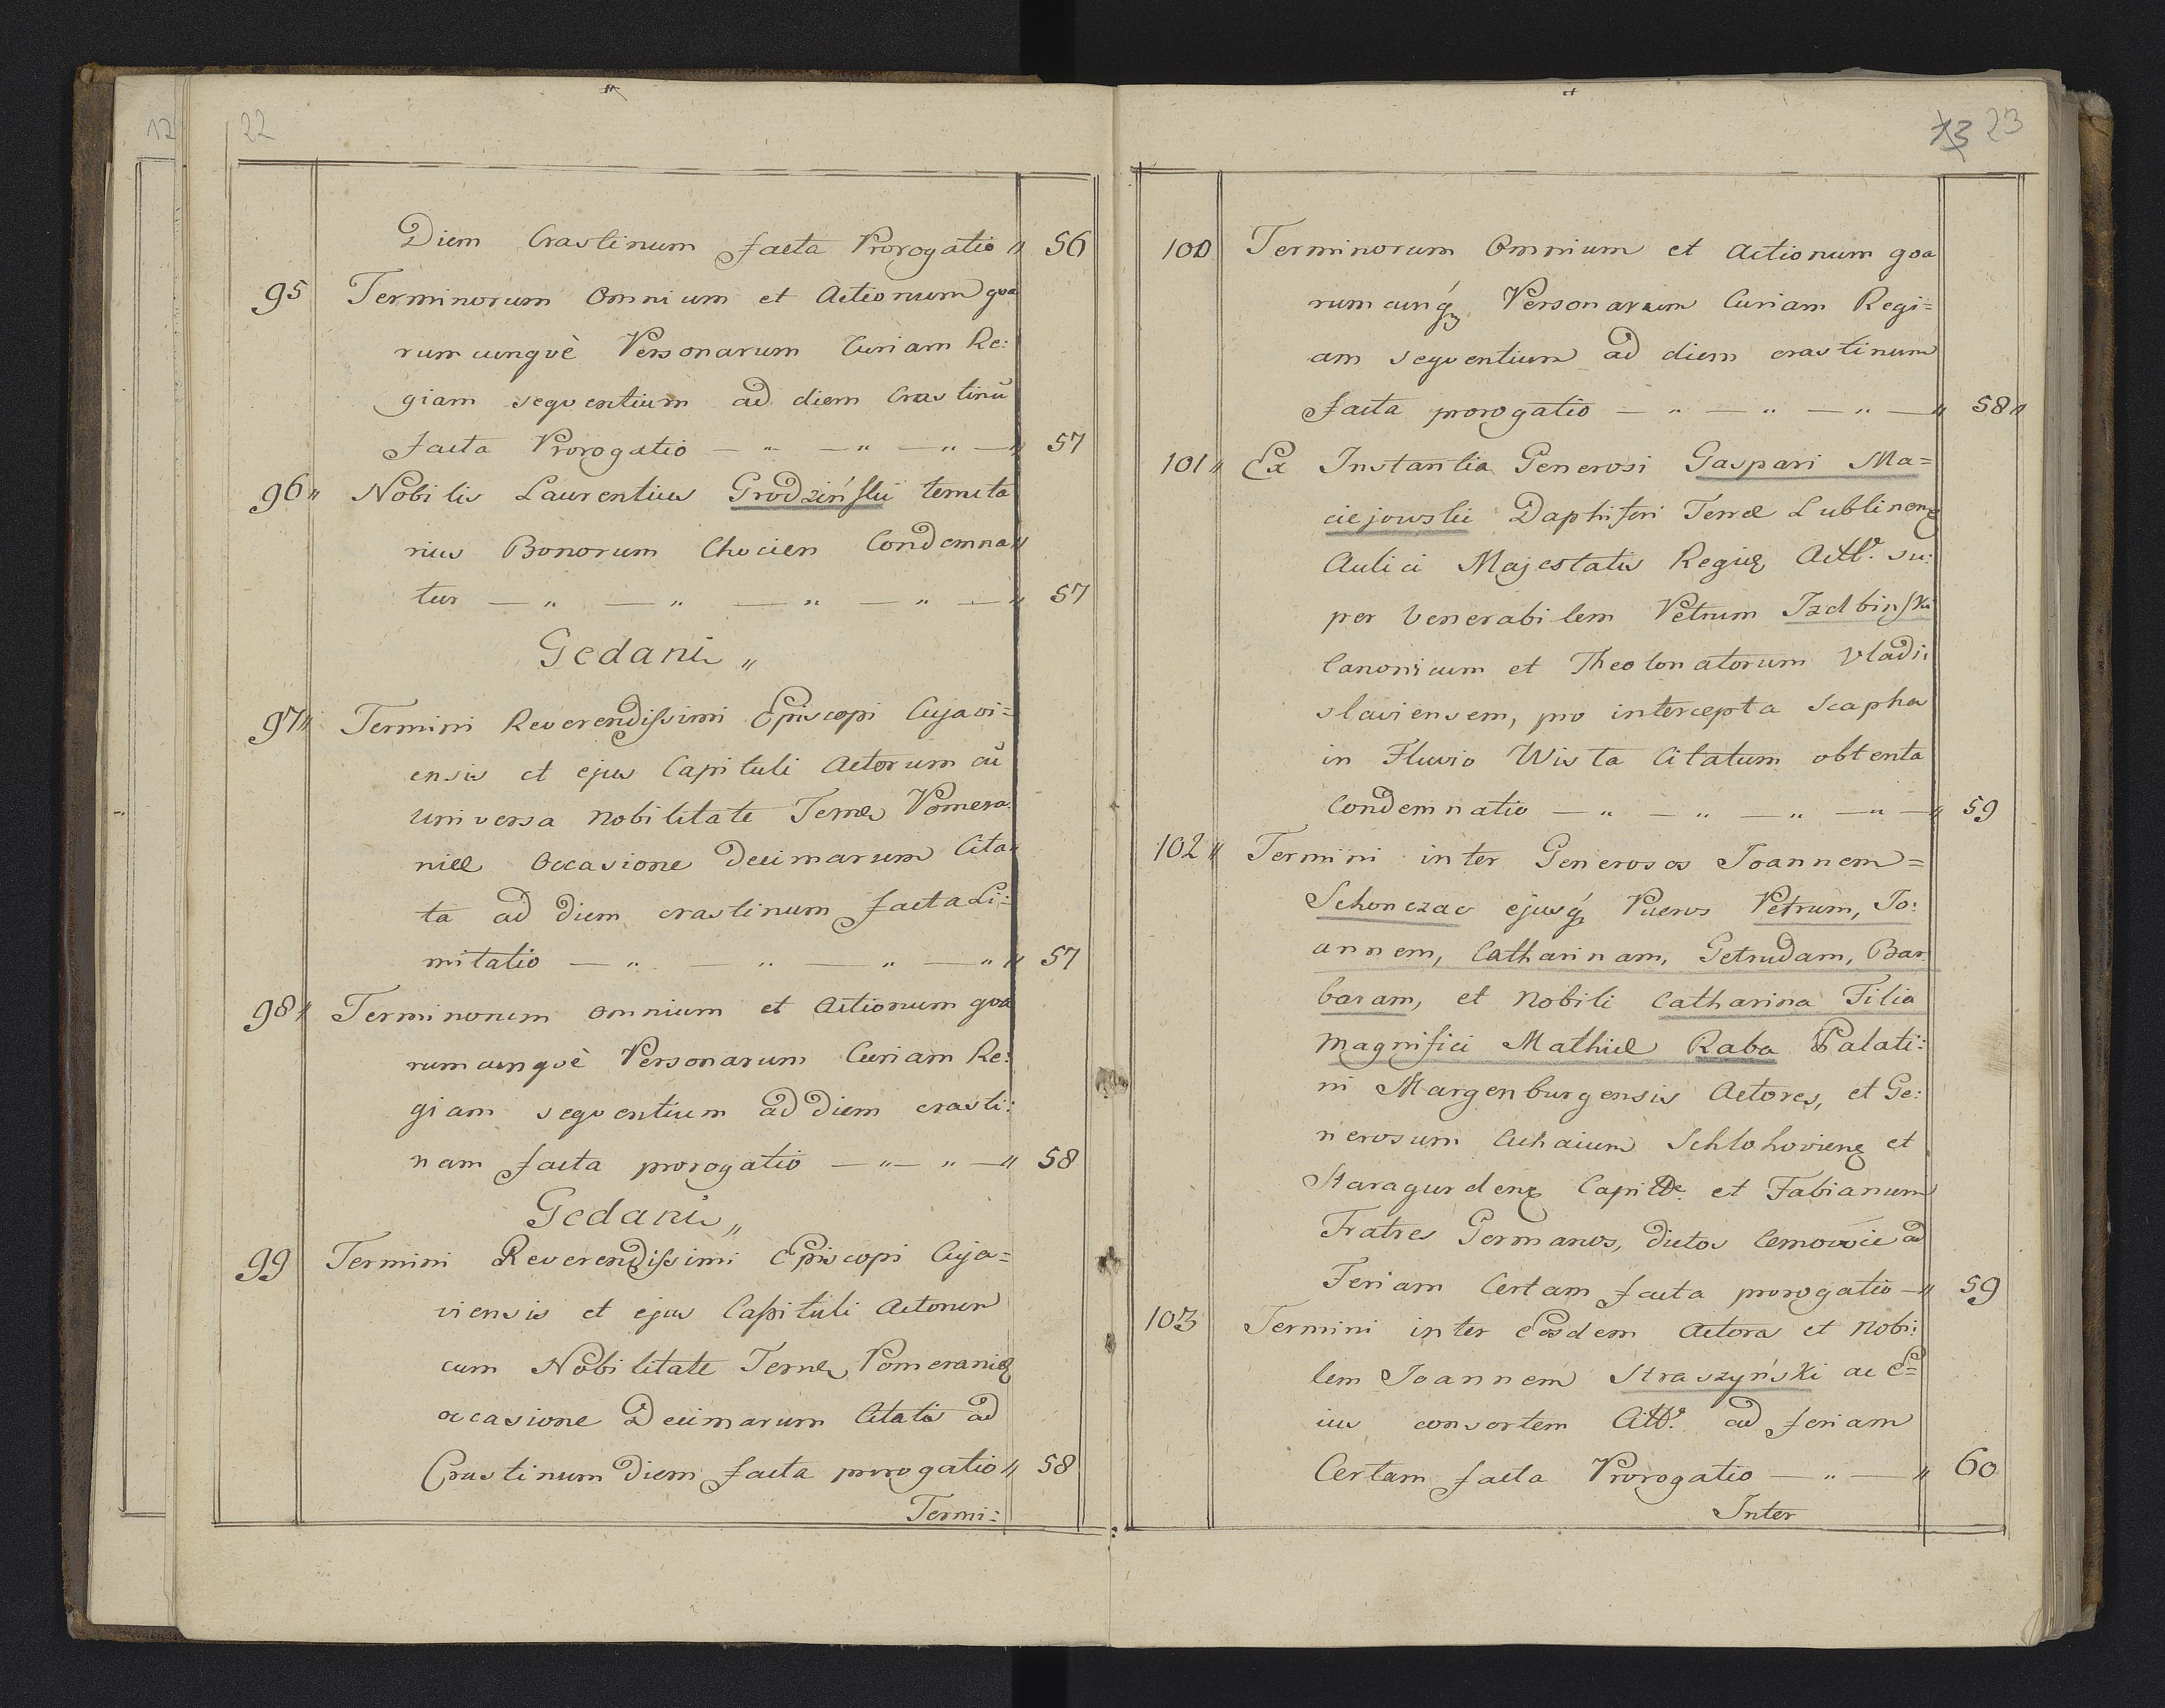 12
22
Diem Crastinum facta Prorogatio " 56
95 Terminorum Omnium et Actionum qva
rumcunqvè Personarum Curiam Re:
giam seqventium ad diem Crastinū
facta Prorogatio — " — " — " — " 57
96 " Nobilis Laurentius Grodziński tenuta
rius Bonorum Chocien Condemna "
tur — " — " — " — " — " 57
Gedani "
97 " Termini Reverendissimi Episcopi Cujavi=
ensis et ejus Capituli Actorum cū
universa Nobilitate Terræ Pomera:
niæ Occasione Decimarum Cita "
ta ad Diem crastinum facta Li:
mitatio — " — " — " — " " 57
98 " Terminorum omnium et Actionum qva
rumcunqvè Personarum Curiam Re:
giam seqventium ad Diem crasti:
nam facta prorogatio — " — " — " 58
Gedani "
99 Termini Reverendissimi Episcopi Cuja=
viensis et ejus Capituli Actorum
cum Nobilitate Terræ Pomeraniæ
occasione Decimarum Citata ad
Crastinum Diem facta prorogatio " 58
Termi:
13 23
100 Terminorum Omnium et Actionum qva
rumcunq́ꝫ Personarum Curiam Regi=
am seqventium ad diem crastinum
facta prorogatio — " — " — " — " 58 "
101 " Ex Instantia Generosi Gaspari Ma=
ciejowski Daphiferi Terræ Lublinenꝫ
Aulici Majestatis Regiæ Actt. su:
per Venerabilem Petrum Izdbinski
Canonicum et Theolonatorum Vladi:
slaviensem, pro intercepta Scapha
in Fluvio Wista Citatum obtenta
Condemnatio — " — " — " — " — " 59
102 " Termini inter Generosos Joannem=
Schonczac ejusq́ꝫ Pueros Petrum, Jo:
annem, Catharinam, Getrudam, Bar
baram, et Nobili Catharina Filia
Magnifici Mathiæ Raba Palati:
ni Margenburgensis Actores, et Ge:
nerosum Achaium Schlohovienꝫ et
Staragurdenꝫ Capitt. et Fabianum
Fratres Germanos, dictos Cemowie ad
Feriam Certam facta prorogatio — " 59
103 Termini inter Eosdem Actora et Nobi:
lem Joannem Straszyński ac E=
ius consortem Citt. ad feriam
Certam facta Prorogatio — " — " 60
Inter